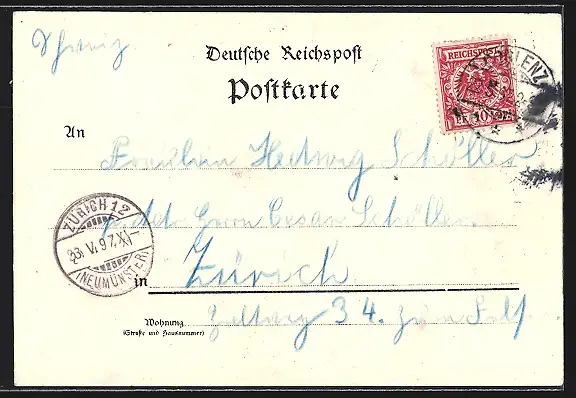 Schweiz
Deutsche Reichspost
Postkarte
REICHSPOST
PF. 10
An
Fräulein Hedwig Schöller
Herrn Cesar Schöller
in Zürich
Wohnung
(Straße und Hausnummer)
Zeltweg 34. zum
ZÜRICH 12
23. V. 97. XI
(NEUMÜNSTER)